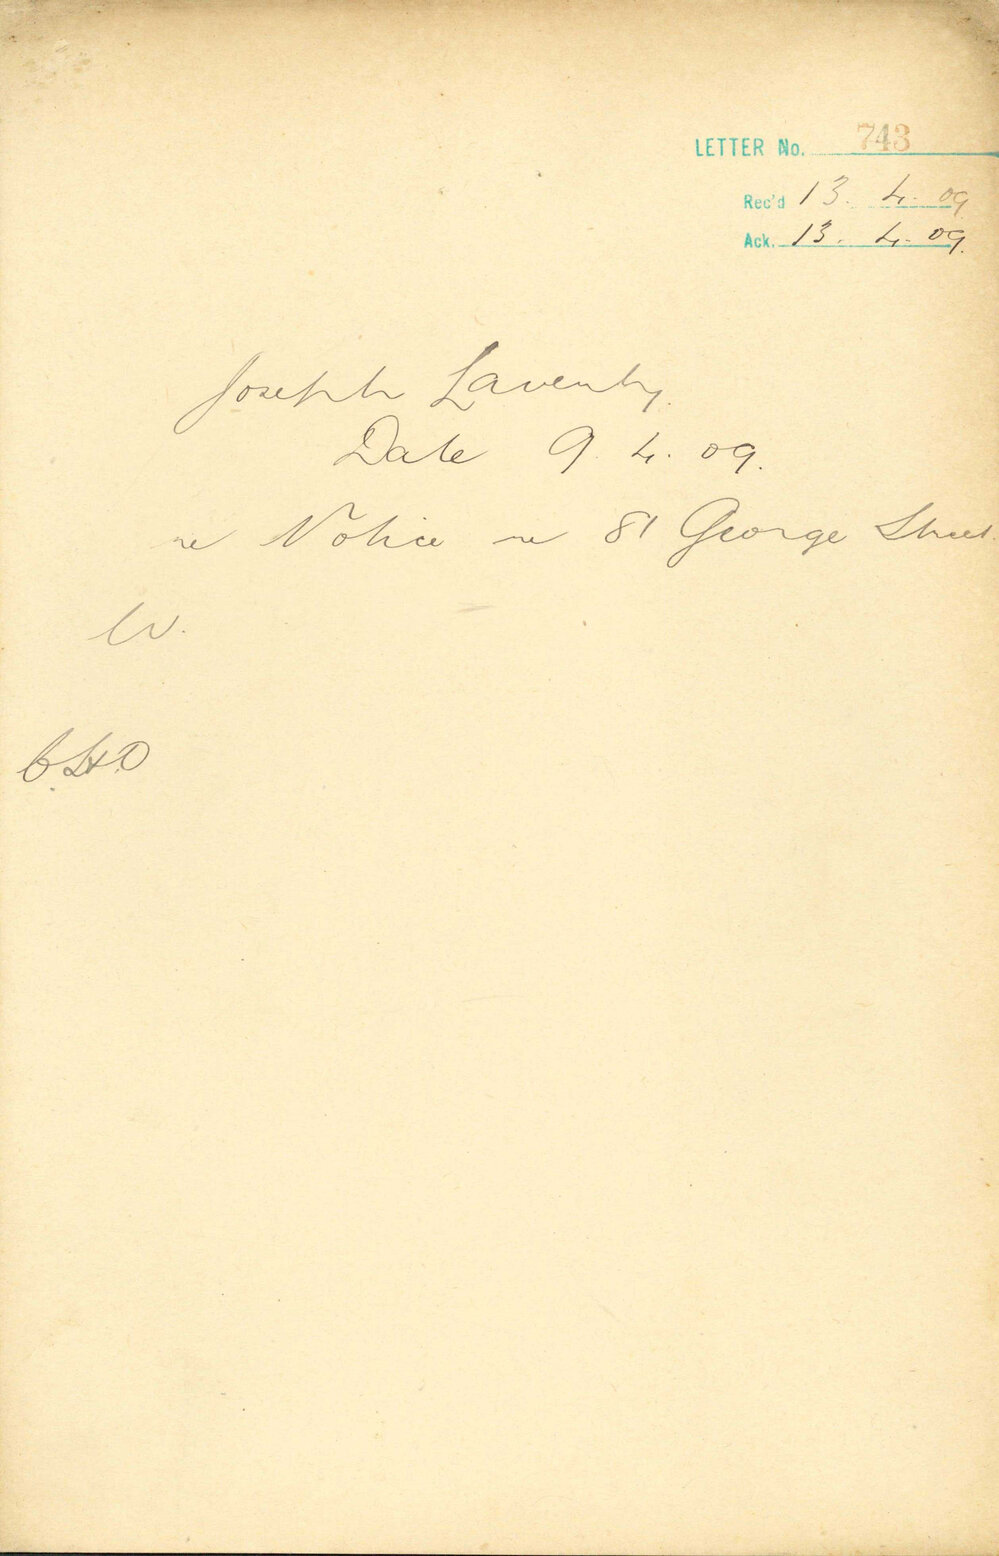 LETTER No. 743
Rec'd 13. 4. 09
Ack. 13. 4. 09.
Joseph
Date 9. 4. 09.
re Notice re 81 George Street.
W.
C.H.O